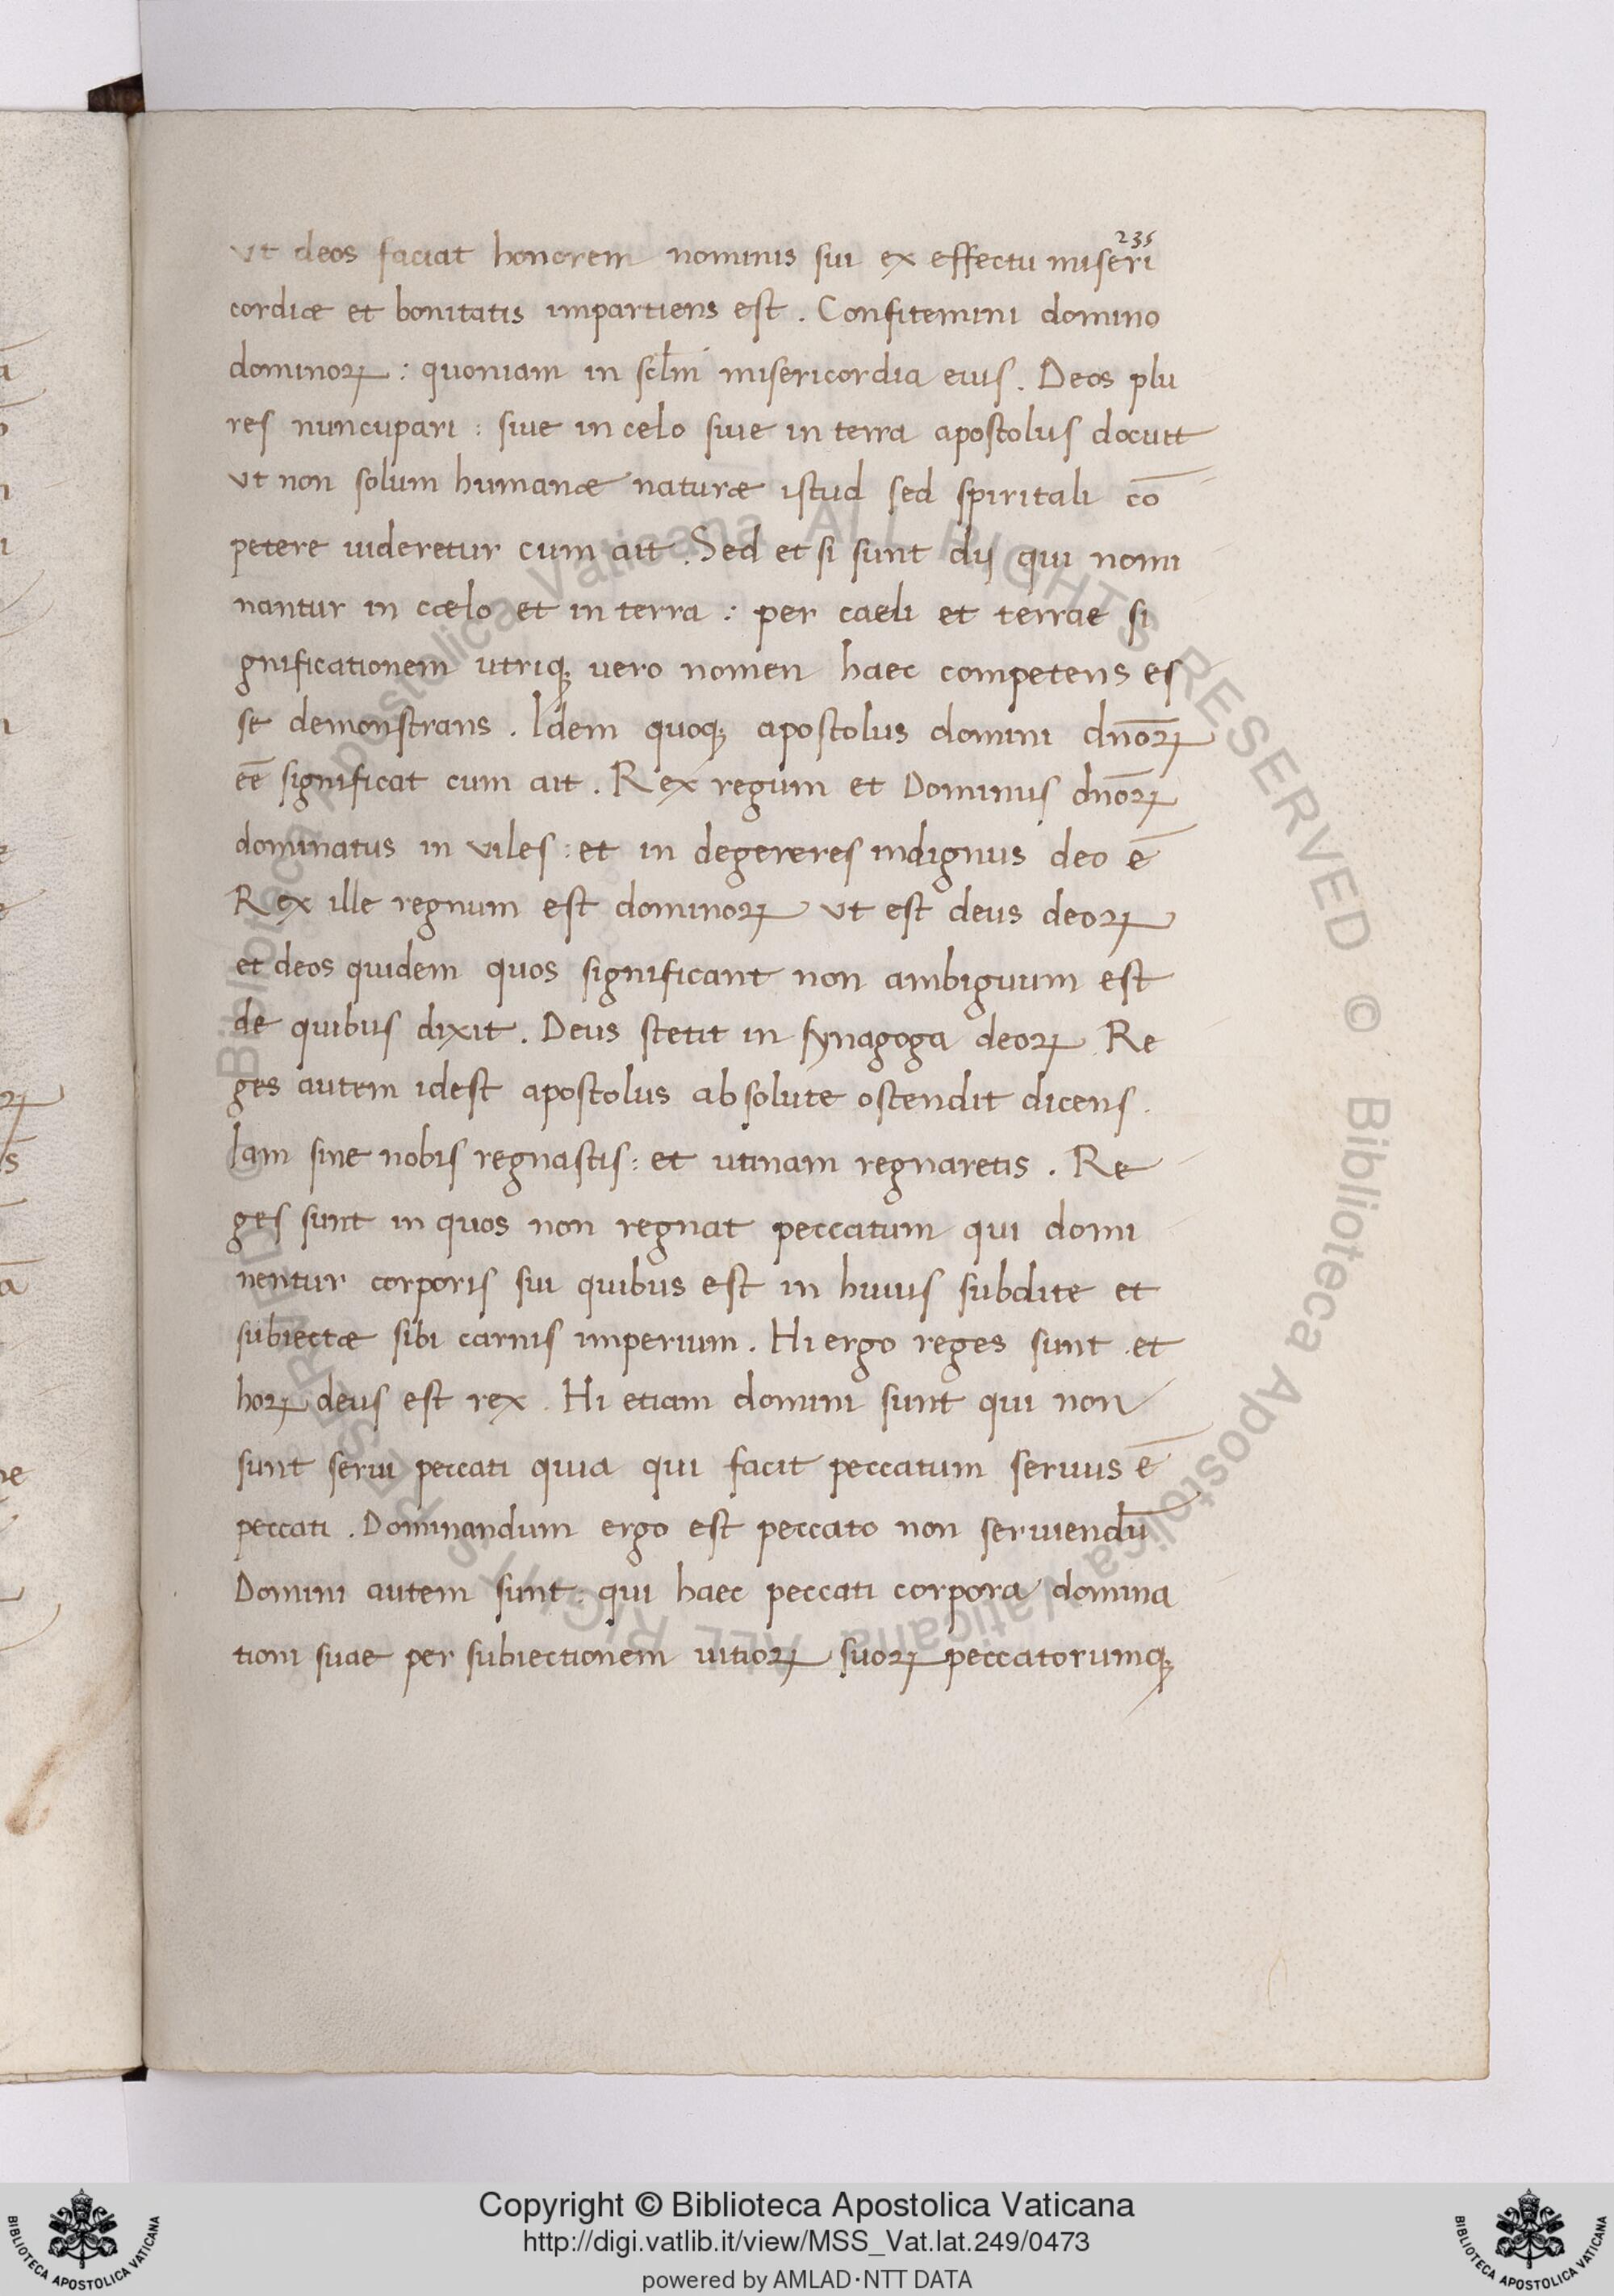 235
vt deos faciat honorem nominis sui ex effectu miseri
cordiæ et bonitatis impartiens est . Confitemini domino
dominoꝝ : quoniam in scl̄m misericordia eius . Deos plu
res nuncupari : siue in celo siue in terra apostolus docuit
vt non solum humanæ naturæ istud sed spiritali cō
petere uideretur cum ait . Sed et si sunt dij qui nomi
nantur in cælo et in terra : per caeli et terrae si
gnificationem utriqꝫ vero nomen haec competens es
se demonstrans . Idem quoqꝫ apostolus domini dn̄oꝝ
eē significat cum ait . Rex regum et Dominus dn̄oꝝ
dominatus in viles : et in degereres indignus deo ē
Rex ille regnum est dominoꝝ vt est deus deoꝝ
et deos quidem quos significant non ambiguum est
de quibus dixit . Deus stetit in synagoga deoꝝ Re
ges autem idest apostolus absolute ostendit dicens .
Iam sine nobis regnastis : et utinam regnaretis . Re
ges sunt in quos non regnat peccatum qui domi
nentur corporis sui quibus est in huius subdite et
subiectæ sibi carnis imperium . Hi ergo reges sunt et
hoꝝ deus est rex . Hi etiam domini sunt qui non
sunt serui peccati quia qui facit peccatum seruus ē
peccati . Dominandum ergo est peccato non seruiendū
Domini autem sunt : qui haec peccati corpora domina
tioni suae per subiectionem uitioꝝ suoꝝ peccatorumqꝫ
© Biblioteca Apostolica Vaticana ALL RIGHTS RESERVED © Biblioteca Apostolica Vaticana ALL RIGHTS RESERVED
Copyright © Biblioteca Apostolica Vaticana
http://digi.vatlib.it/view/MSS_Vat.lat.249/0473
powered by AMLAD·NTT DATA
BIBLIOTECA APOSTOLICA VATICANA
BIBLIOTECA APOSTOLICA VATICANA